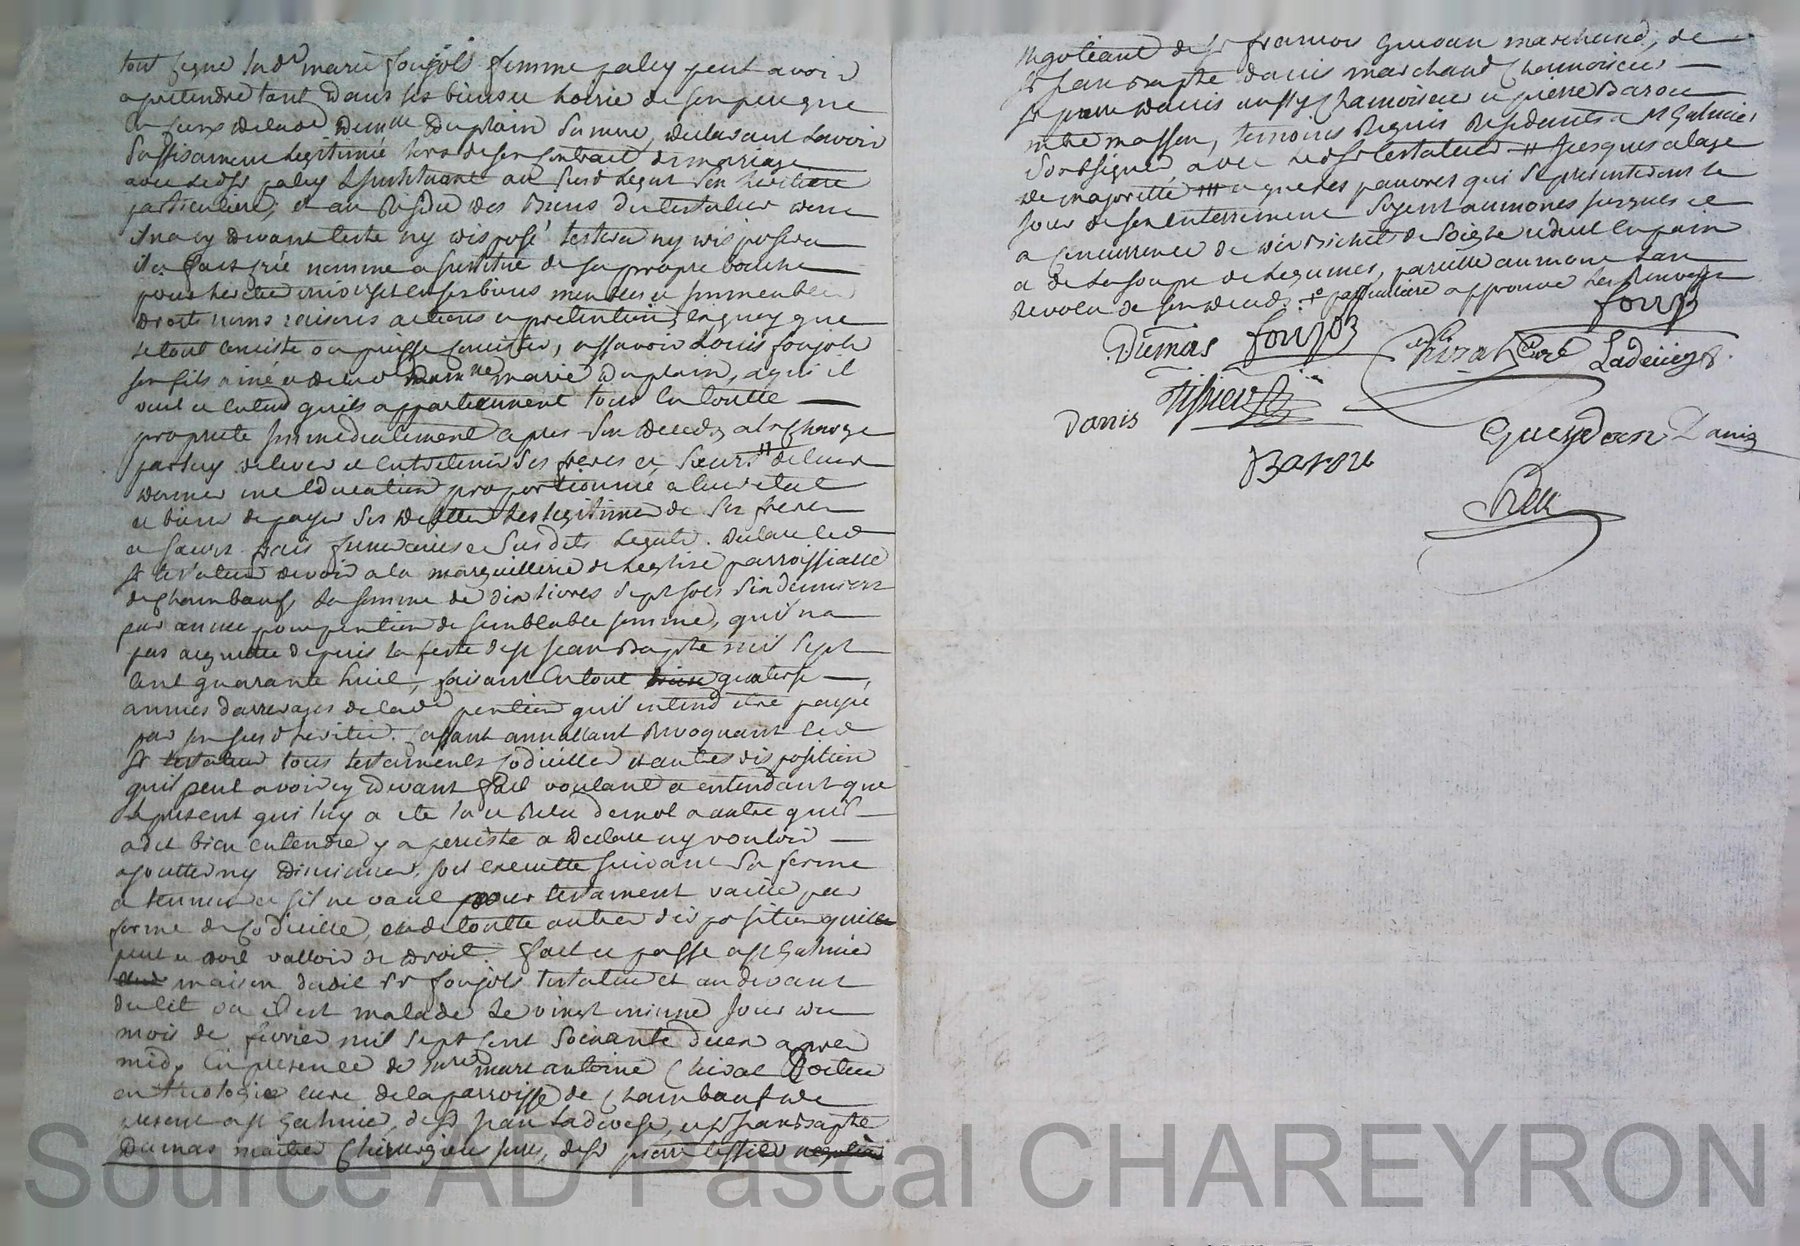 tout ce que lad. marie foujols femme paley peut avoir
a pretendre tant dans ses biens et hoirie de son pere que
en ceux de lade demlle Duplain sa mere, declarant lavoir
suffisament legitimée lors de son contrait de mariage
avec ledsr paley linstituant au susd legat son heritiere
particuliere, et au Residu des Biens du testateur dont
il na cy devant teste ny disposé testera ny disposera
il a fait crée nommé a institué de sa propre bouche
pour heritier universel en ses biens meubles et immeubles
droits noms raisons actions et pretentions en quoy que
le tout consiste ou puisse consister, assavoir Louis foujols
son fils ainé et de lad demlle marie duplain, a qui il
veut et entend quils appartiennent tous en toutte
propriete immediatement apres son deceds a la charge
par luy deslever et entretenir ses freres et soeurs # de leur
donner une Education proportionnée a leur etat
et biens de payer ses dettes les legitimes de ses freres
et soeurs frais funeraires et susdits legats. Declare led
sr testateur devoir a la marguillerie de leglise parroissialle
de chambœuf, la somme de dix livres sept sols six deniers
par année pour pention de semblable somme, quil na
pas acquittée depuis la feste de st jean Bapte mil sept
cent quarante huit, faisant en tout quatorse
années darrerages de lade pention quil entend etre payée
par son susd heritier. Cassant annullant Revoquant led
sr testateur tous testaments codicilles et autres disposition
quil peut avoir cy devant fait voulant et entendant que
le present qui luy a ete lu et Relu de mot a autre quil
a dit bien entendre y a persisté et declare ny vouloir
ajoutter ny diminuer, soit executté suivant sa forme
et teneur et sil ne vaut pour testament vaille par
forme de codicille, et de toutte autre disposition quil
peut et doit valloir de droit. fait et passe a st Galmier
maison dudit sr foujols testateur et au devant
du lit ou il est malade le vingt unieme jour du
mois de fevrier mil sept cent soixante deux apres
midy en presence de mre marc antoine Chirat Docteur
en theologie curé de la parroisse de chambœuf de
present a st Galmier, de sr jean Ladevese, et sr jean Bapte
Dumas maitre chirurgiens jurés, de sr pierre tissier
negotiant de sr francois Gueidan marchand, de
sr Jean Bapte danis marchand chamoiseur
sr pierre danis aussy chamoiseur et pierre Barou
mtre masson, temoins Requis Residents a st Galmier
soussignés avec ledsr testateur # jusques a lage
de majoritté ### et que les pauvres qui se presenteront le
jour de son enterrement soyent aumonés jusques et
a concurrence de dix Bichet de seigle reduit en pain
et de la soupe de legumes, pareille aumone lan
Revolu de son deceds particuliere approuvé les Renvoys
foujols
Dumas foujols Chirat Curé Ladevese
Danis Tissier
Gueydan Danis
Barou